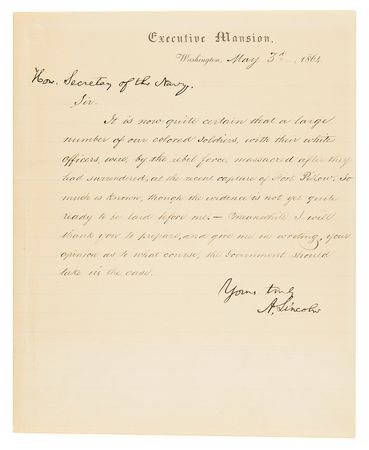 Executive Mansion,
Washington, May 3d, 1864
Hon. Secretary of the Navy.
Sir.
It is now quite certain that a large
number of our colored soldiers, with their white
officers, were, by the rebel force, massacred after they
had surrendered, at the recent capture of Fort Pillow. So
much is known, though the evidence is not yet quite
ready to be laid before me. — Meanwhile I will
thank you to prepare, and give me in writing, your
opinion as to what course, the Government should
take in the case.
Yours truly
A. Lincoln